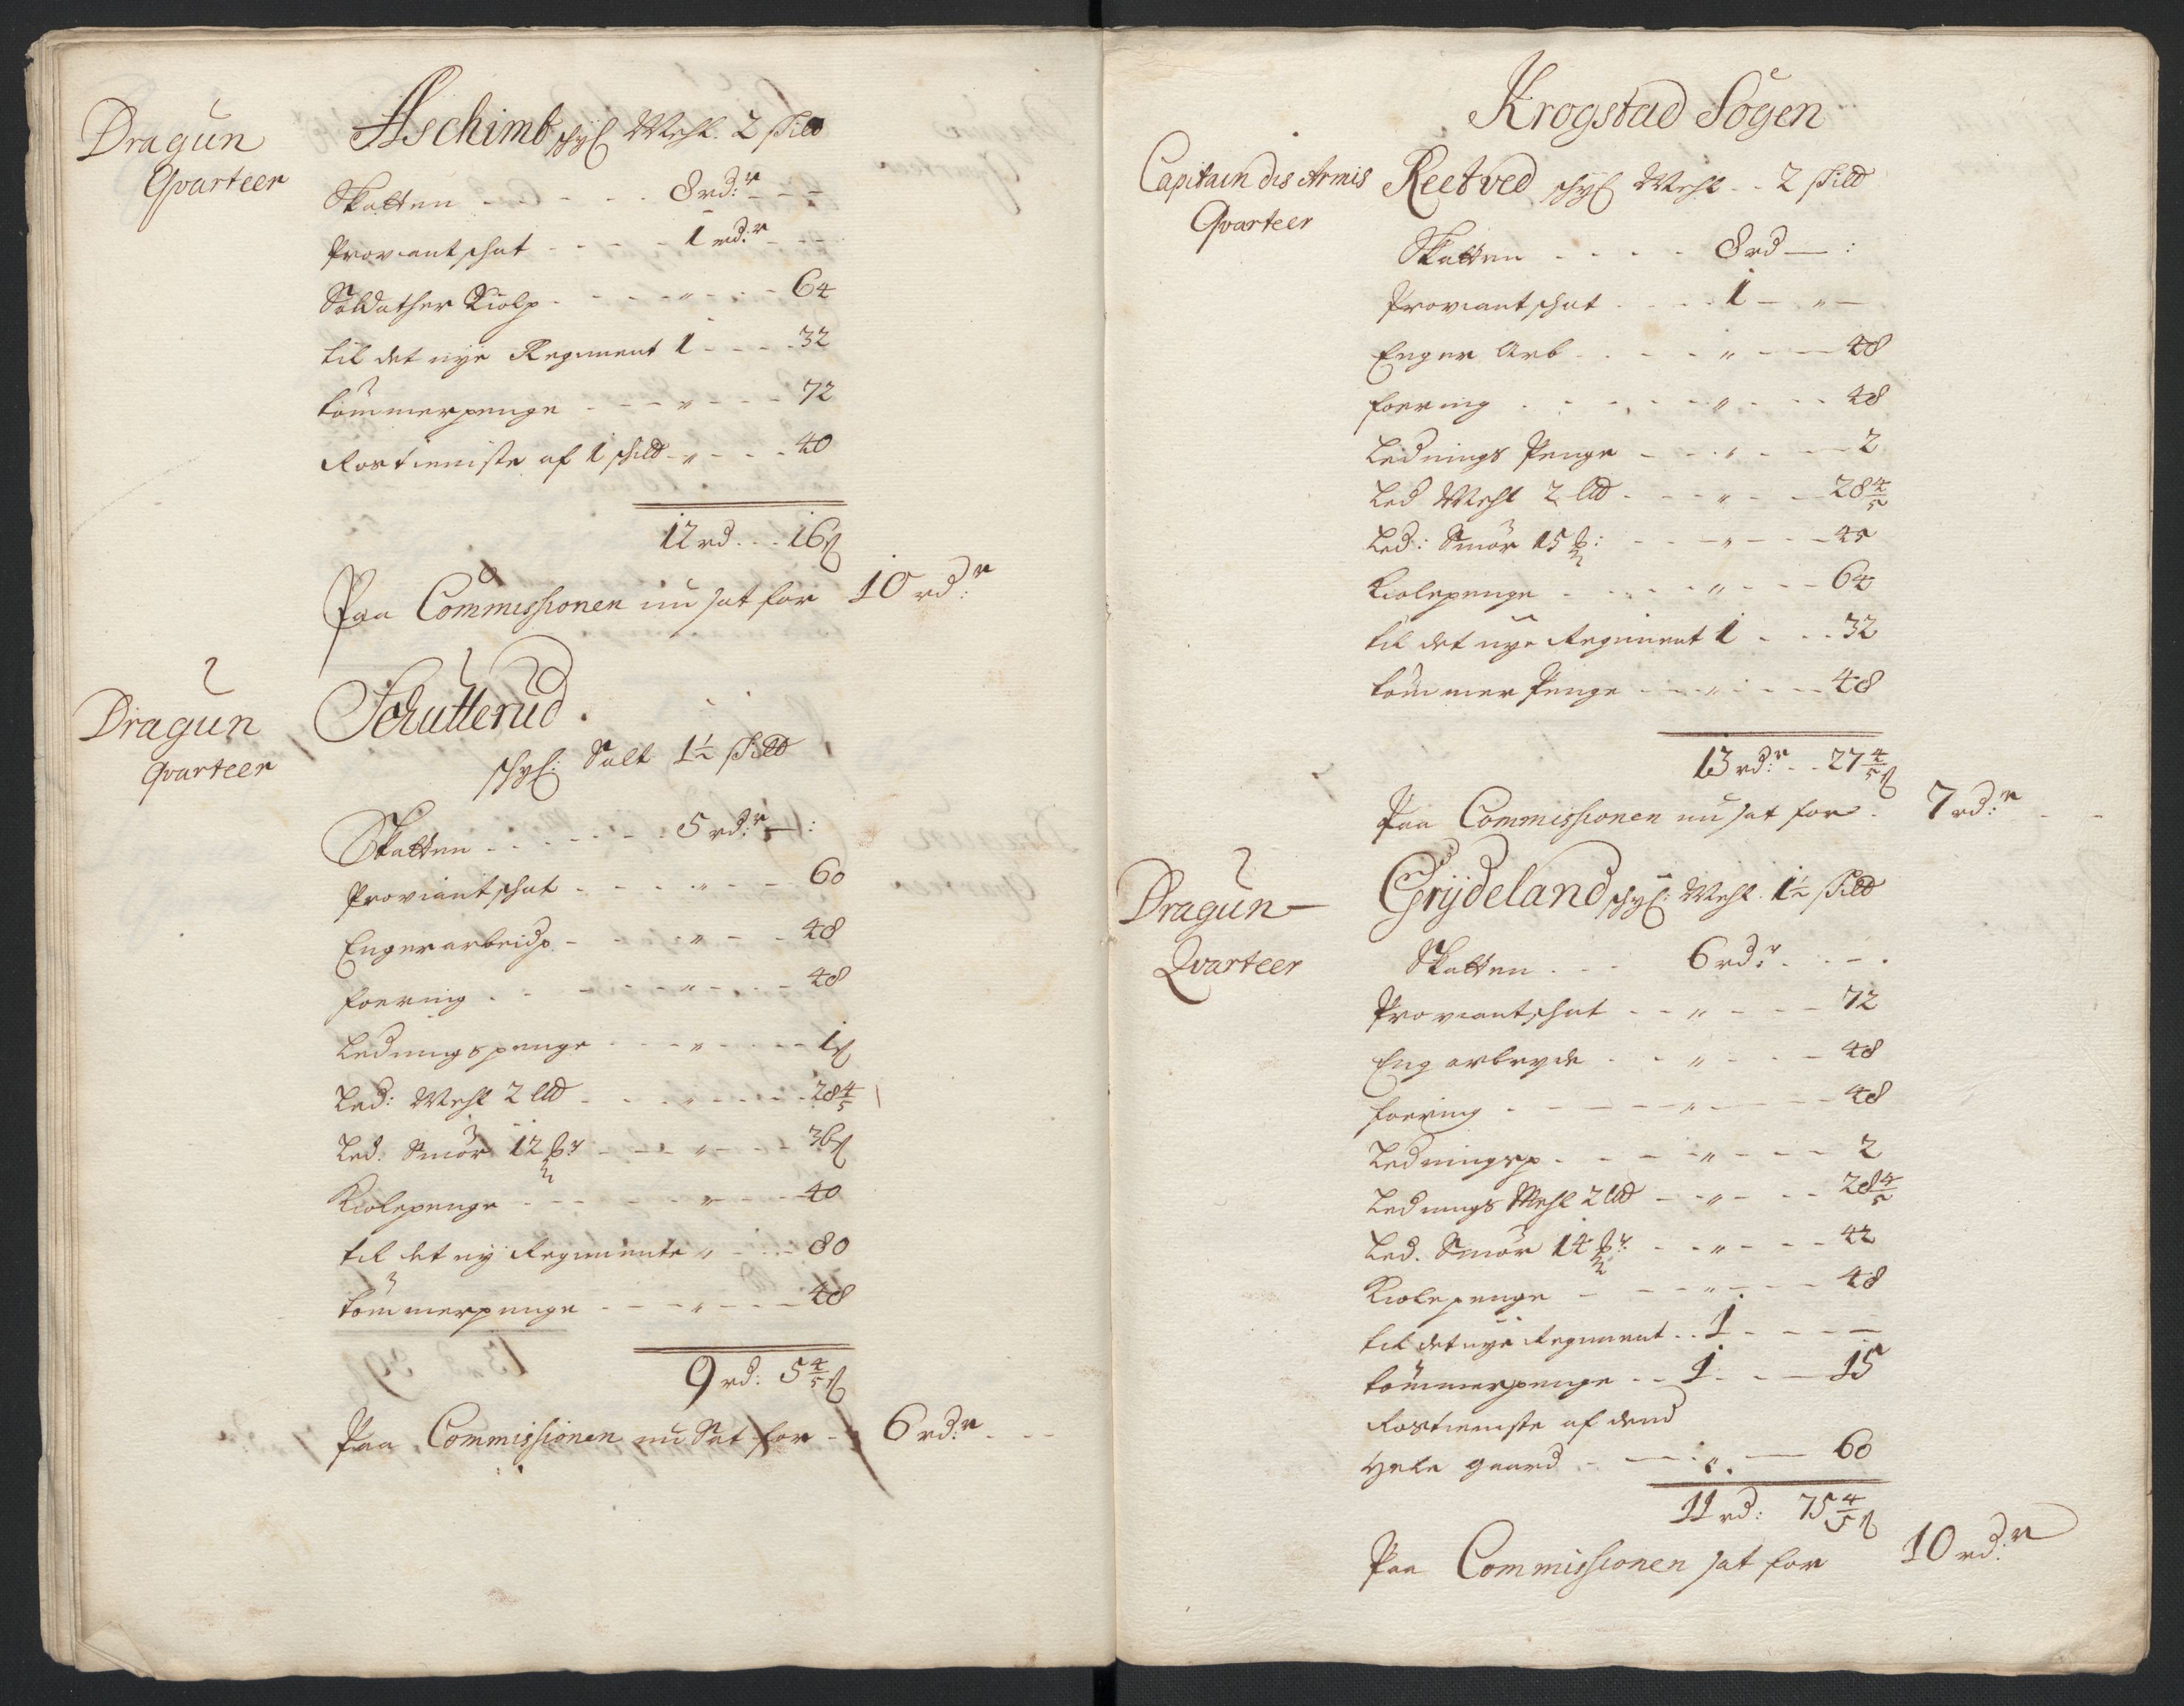 Dragun
Qvarteer
Aschimb schyl Mehl. 2 schild
Skatten - - - - - 8 rd:r - -
Proviantschat - - - - - 1 rd:r - -
Soldather Kiolp - - - - " - - 64
til det nÿe Regiment 1 - - - 32
tömmerpenge - - - " - - - 72
Rostieniste af 1 schild - " - - - 40
12 rd - - 16 ß
Paa Commissionen nu sat for 10 rd:r
Dragun
Qvarteer
Schutterud.
schyl: Salt 1½ schild
Skatten - - - - - - 5 rd:r - :
Proviantschat - - - - " - - - 60
Engerarbeidp - - - " - - 48
foering - - - - - " - - - 48
Ledningspenge - - - " - - - - 1 ß
Led: Mehl 2 lld - - - " - - - 28 4/5
Led. Smör 12 ℔r - - - " - - - 36 ß
Kiolepenge - - - - - " - - - 40
til det nÿ Regimente " - - - 80
tömmerpenge - - - " - - - 48
9 rd: 5 4/5 ß
Paa Commissionen nu Sat for - 6 rd:r - -
Krogstad Sogen
Capitain des Armis
Qvarteer
Reetved schyl Mehl - - 2 schild
Skatten - - - - 8 rd - :
Proviantschat - - - - 1 - " -
Enger Arb - - - - " - - 48
foering - - - - - " - - - 48
Lednings Penge - - - " - - - 2
Led Mehl 2 lld - - - " - - 28 4/5
Led: Smör 15 ℔: - - - " - - - 45
Kiolepenge - - - - " - - - 64
til det nye Regiment 1 - - - 32
tömmer Penge - - - " - - - 48
13 rd:r - - 27 4/5 ß
Paa Commissionen nu sat for - 7 rd:r - -
Dragun -
Qvarteer
Grÿdeland schyl: Mehl. 1½ schild
Skatten - - - 6 rd:r - - -
Proviantschat - - " - - - 72
Eng arbeyde - - " - - - 48
foering - - - - - " - - - 48
Ledningsp - - - - " - - - 2
Lednings Mehl 2 lld - - " - - - 28 4/5
Led. Smör 14 ℔r: - - " - - - 42
Kiolepenge - - - - " - - - 48
til det nye Regiment - - 1 - - - -
tömmerpenge - - 1 - - - 15
Rostieniste af dend
Hele gaard - - - " - - 60
11 rd: 75 4/5 ß
Paa Commissionen sat for 10 rd:r